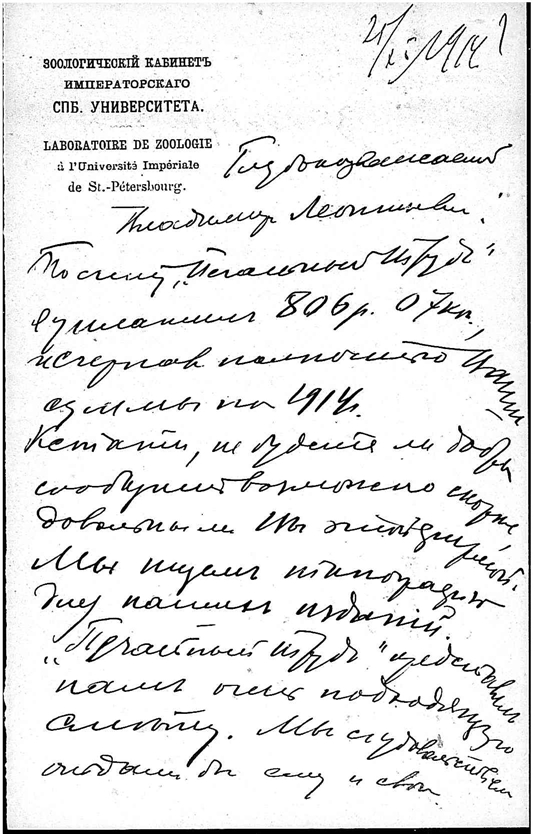 25/XI 1914
ЗООЛОГИЧЕСКІЙ КАБИНЕТЪ
ИМПЕРАТОРСКАГО
СПБ. УНИВЕРСИТЕТА.
LABORATOIRE DE ZOOLOGIE
à l'Université Impériale
de St.-Pétersbourg.
Глубокоуважаемый
Владимир Леонтьевич.
По счету „Печатный Трудъ"
я уплатилъ 806р. 07кп.,
исчерпав полностью Ваши
суммы на 1914г.
Кстати, не будете ли добры
сообщить возможно скорее,
довольны ли Вы этой фирмой.
Мы ищемъ типографию
для нашихъ изданій.
„Печатный Трудъ" представилъ
намъ очень подходящую
смѣту. Мы с удовольствіем
отдали бы ему и свои